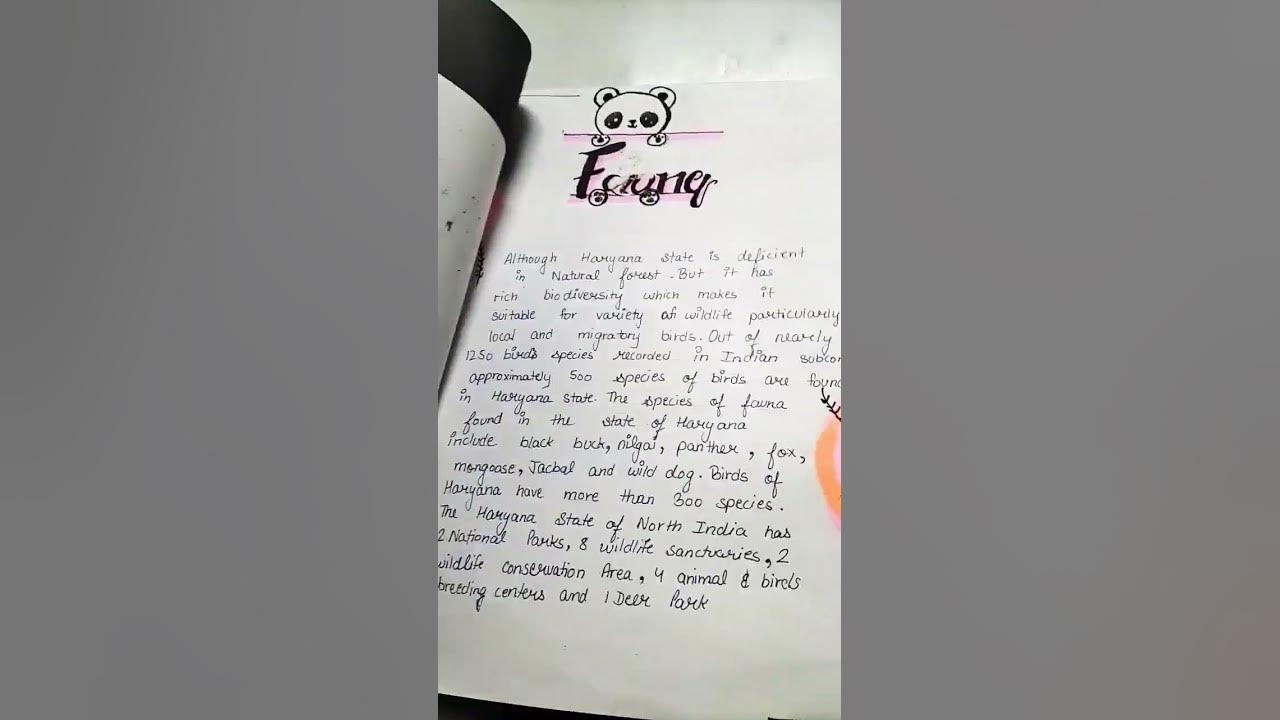 Fauna
Although Haryana state is deficient
in Natural forest. But it has
rich biodiversity which makes it
suitable for variety of wildlife particularly
local and migratory birds. Out of nearly
1250 birds species recorded in Indian subcon
approximately 500 species of birds are found
in Haryana state. The species of fauna
found in the state of Haryana
include black buck, nilgai, panther, fox,
mongoose, Jackal and wild dog. Birds of
Haryana have more than 300 species.
The Haryana State of North India has
2 National Parks, 8 wildlife sanctuaries, 2
wildlife conservation Area, 4 animal & birds
breeding centers and 1 Deer Park